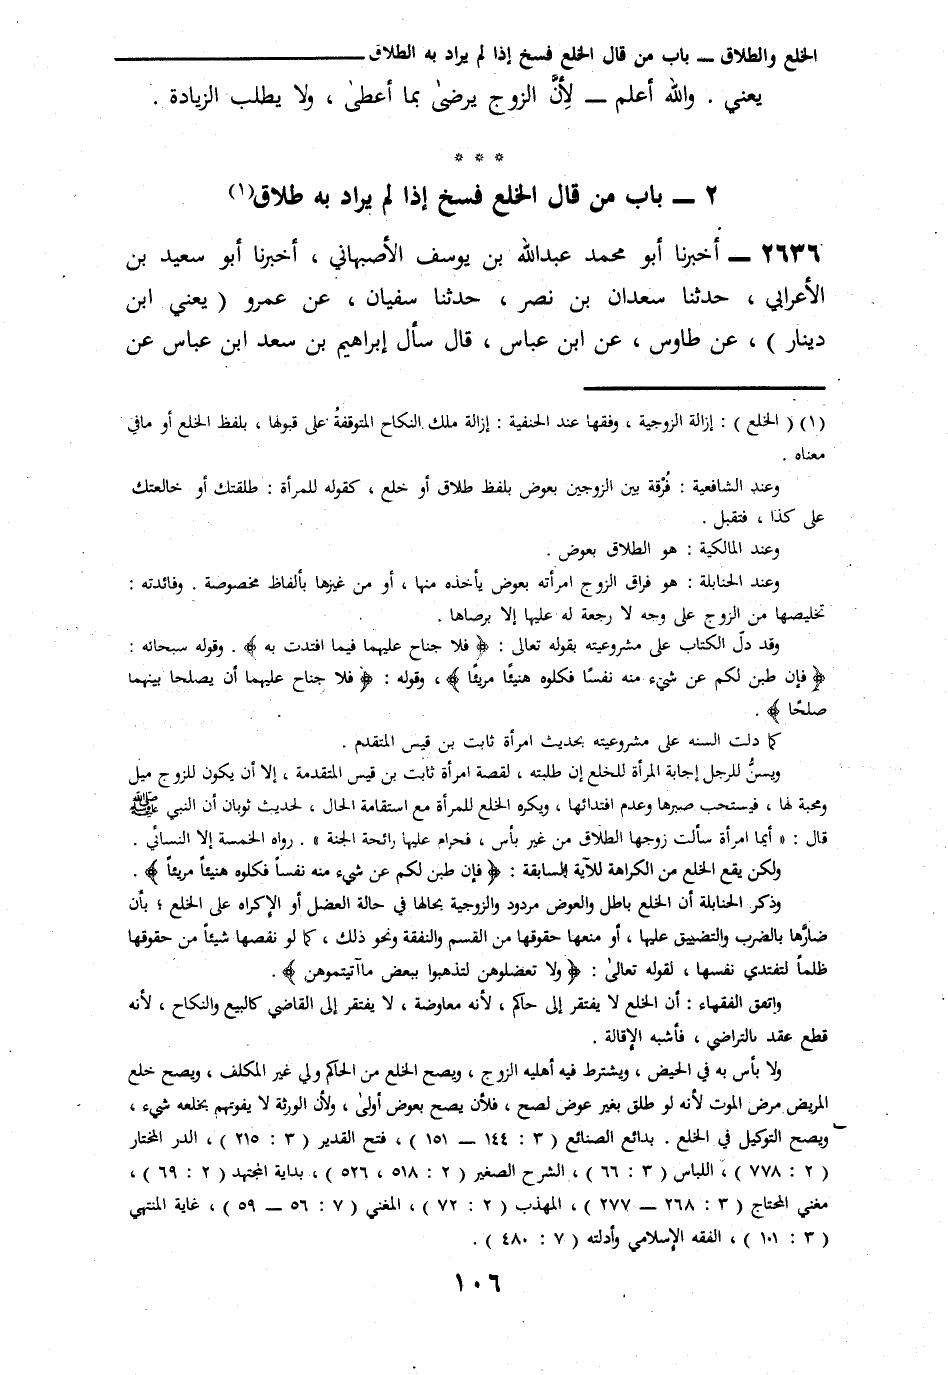 الخلع والطلاق — باب من قال الخلع فسخ إذا لم يراد به الطلاق
يعني . والله أعلم — لِأنَّ الزوج يرضىٰ بما أعطىٰ ، ولا يطلب الزيادة .
* * *
٢ — باب من قال الخلع فسخ إذا لم يراد به طلاق(١)
٢٦٣٦ — أخبرنا أبو محمد عبدالله بن يوسف الأصبهاني ، أخبرنا أبو سعيد بن
الأعرابي ، حدثنا سعدان بن نصر ، حدثنا سفيان ، عن عمرو ( يعني ابن
دينار ) ، عن طاوس ، عن ابن عباس ، قال سأل إبراهيم بن سعد ابن عباس عن
(١) ( الخلع ) : إزالة الزوجية ، وفقها عند الحنفية : إزالة ملك النكاح المتوقفةُ على قبولها ، بلفظ الخلع أو مافي
معناه .
وعند الشافعية : فُرْقة بين الزوجين بعوض بلفظ طلاق أو خلع ، كقوله للمرأة : طلقتك أو خالعتك
على كذا ، فتقبل .
وعند المالكية : هو الطلاق بعوض .
وعند الحنابلة : هو فراق الزوج امرأته بعوض يأخذه منها ، أو من غيرها بألفاظ مخصوصة . وفائدته :
تخليصها من الزوج على وجه لا رجعة له عليها إلا برضاها .
وقد دلّ الكتاب على مشروعيته بقوله تعالى : ﴿ فلا جناح عليهما فيما افتدت به ﴾ . وقوله سبحانه :
﴿ فإن طبن لكم عن شيء منه نفسًا فكلوه هنيئًا مريئًا ﴾ ، وقوله : ﴿ فلا جناح عليهما أن يصلحا بينهما
صلحًا ﴾ .
كما دلت السنه على مشروعيته بحديث امرأة ثابت بن قيس المتقدم .
ويسنُّ للرجل إجابة المرأة للخلع إن طلبته ، لقصة امرأة ثابت بن قيس المتقدمة ، إلا أن يكون للزوج ميل
ومحبة لها ، فيستحب صبرها وعدم افتدائها ، ويكره الخلع للمرأة مع استقامة الحال ، لحديث ثوبان أن النبي ﷺ
قال : « أيما امرأة سألت زوجها الطلاق من غير بأس ، فحرام عليها رائحة الجنة » . رواه الخمسة إلا النسائي .
ولكن يقع الخلع من الكراهة للآية السابقة : ﴿ فإن طبن لكم عن شيء منه نفساً فكلوه هنيئاً مريئاً ﴾ .
وذكر الحنابلة أن الخلع باطل والعوض مردود والزوجية بحالها في حالة العضل أو الإكراه على الخلع ؛ بأن
ضارَّها بالضرب والتضييق عليها ، أو منعها حقوقها من القسم والنفقة ونحو ذلك ، كما لو نقصها شيئاً من حقوقها
ظلماً لتفتدي نفسها ، لقوله تعالىٰ : ﴿ ولا تعضلوهن لتذهبوا ببعض ماآتيتموهن ﴾ .
واتفق الفقهاء : أن الخلع لا يفتقر إلى حاكم ، لأنه معاوضة ، لا يفتقر إلى القاضي كالبيع والنكاح ، لأنه
قطع عقد بالتراضي ، فأشبه الإقالة .
ولا بأس به في الحيض ، ويشترط فيه أهليه الزوج ، ويصح الخلع من الحاكم ولي غير المكلف ، ويصح خلع
المريض مرض الموت لأنه لو طلق بغير عوض لصح ، فلأن يصح بعوض أولىٰ ، ولأن الورثة لا يفوتهم بخلعه شيء ،
ويصح التوكيل في الخلع . بدائع الصنائع ( ٣ : ١٤٤ — ١٥١ ) ، فتح القدير ( ٣ : ٢١٥ ) ، الدر المختار
( ٢ : ٧٧٨ ) ، اللباس ( ٣ : ٦٦ ) ، الشرح الصغير ( ٢ : ٥١٨ ، ٥٢٦ ) ، بداية المجتهد ( ٢ : ٦٩ ) ،
مغني المحتاج ( ٣ : ٢٦٨ — ٢٧٧ ) ، المهذب ( ٢ : ٧٢ ) ، المغني ( ٧ : ٥٦ — ٥٩ ) ، غاية المنتهي
( ٣ : ١٠١ ) ، الفقه الإسلامي وأدلته ( ٧ : ٤٨٠ ) .
١٠٦